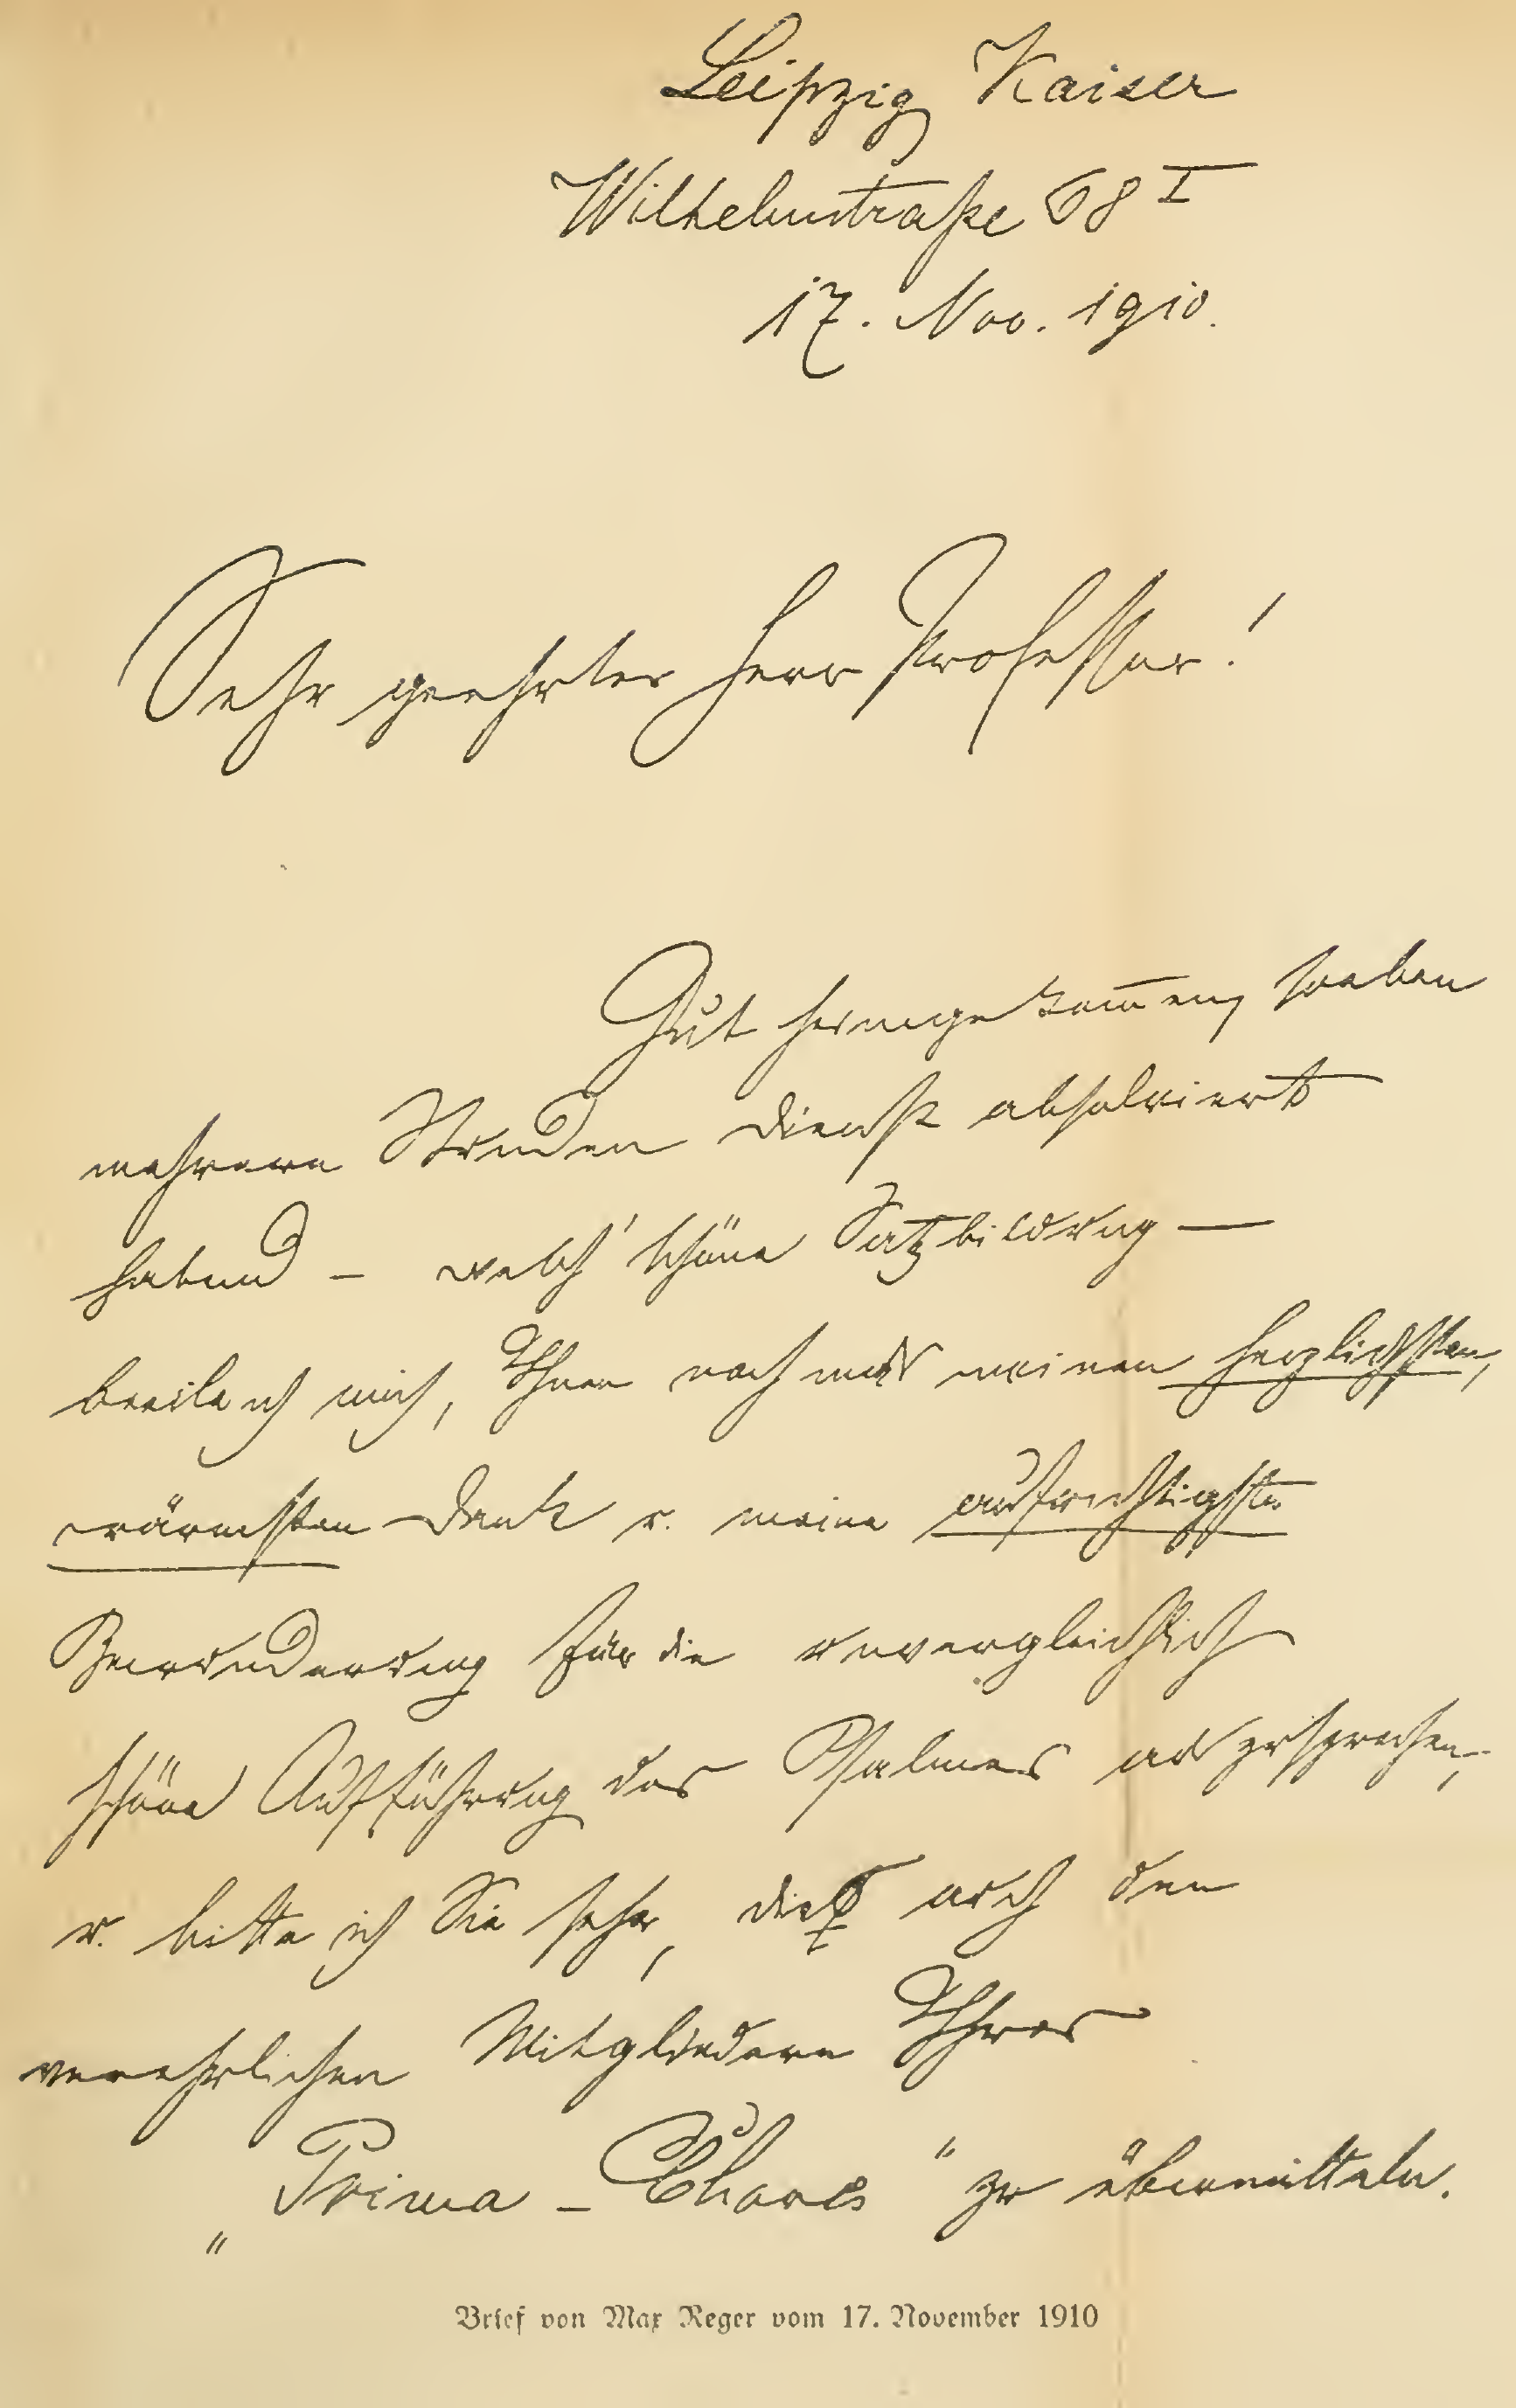 Leipzig Kaiser
Wilhelmstraße 68 I
17. Nov. 1910.
Sehr geehrter Herr Professor!
Gut heimgekom̅en, soeben
mehrere Stunden Dienst absolviert
habend – welch' schöne Satzbildung –
beeile ich mich, Ihnen nochmals meinen herzlichsten,
wärmsten Dank u. meine aufrichtigste
Bewunderung für die unvergleichlich
schöne Aufführung des Psalmes auszusprechen,
u. bitte ich Sie sehr, dieß auch den
verehrlichen Mitgliedern Ihres
„Prima – Chores" zu übermitteln.
Brief von Max Reger vom 17. November 1910